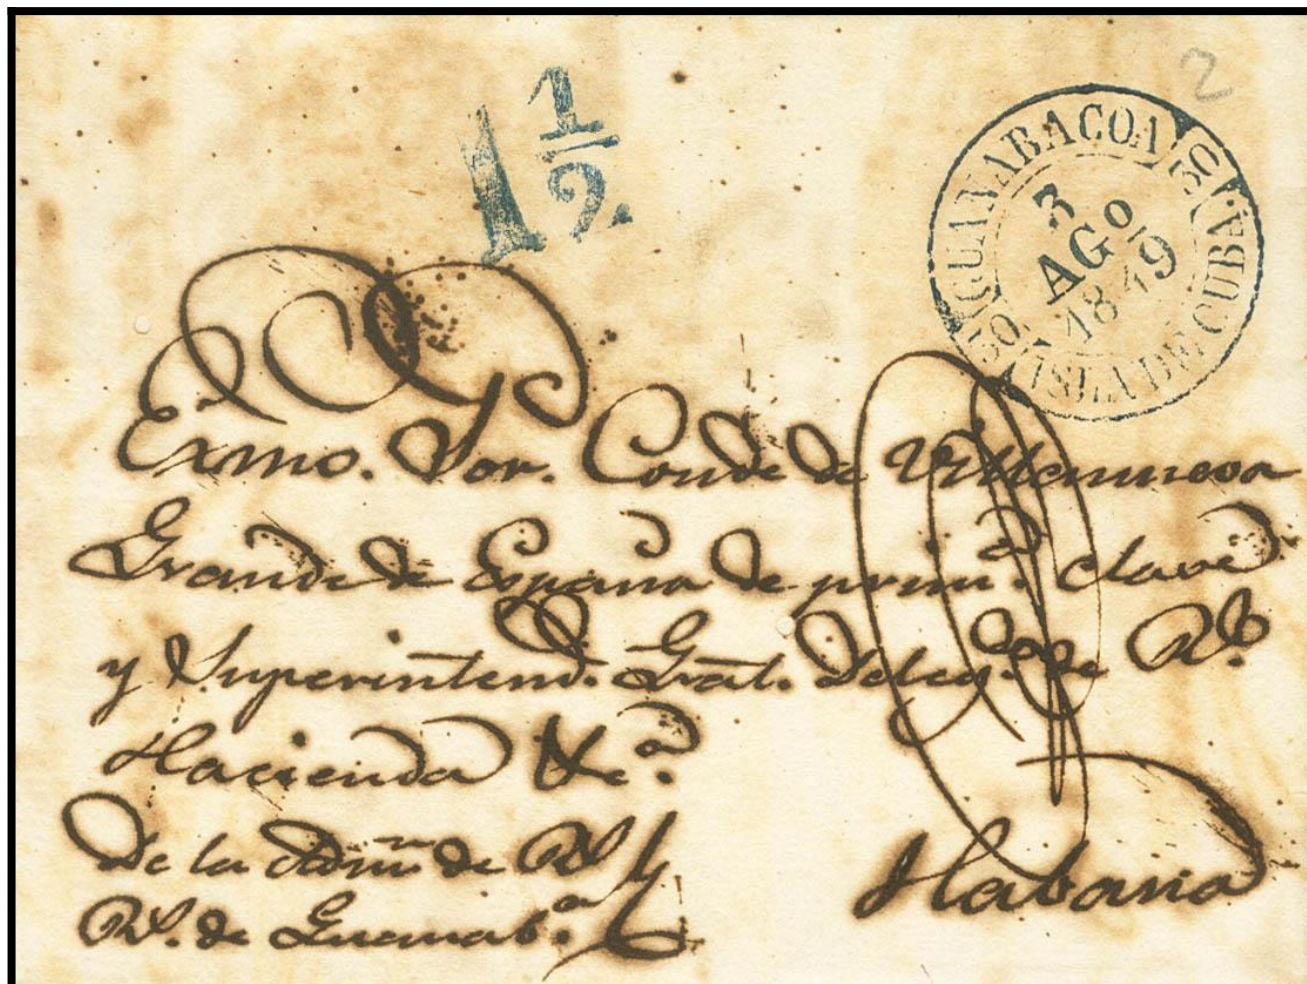 2
1 1/2
GUANABACOA
3
AGO
1849
ISLA DE CUBA.
Exmo. Sor. Conde de Villanueva
Grande de España de prim.ª clase
y Superintend. Gral. Deleg.do de Rl.
Hacienda &c.ª
De la Adm.n de Rs.
Rs. de Guanab.ª
Habana